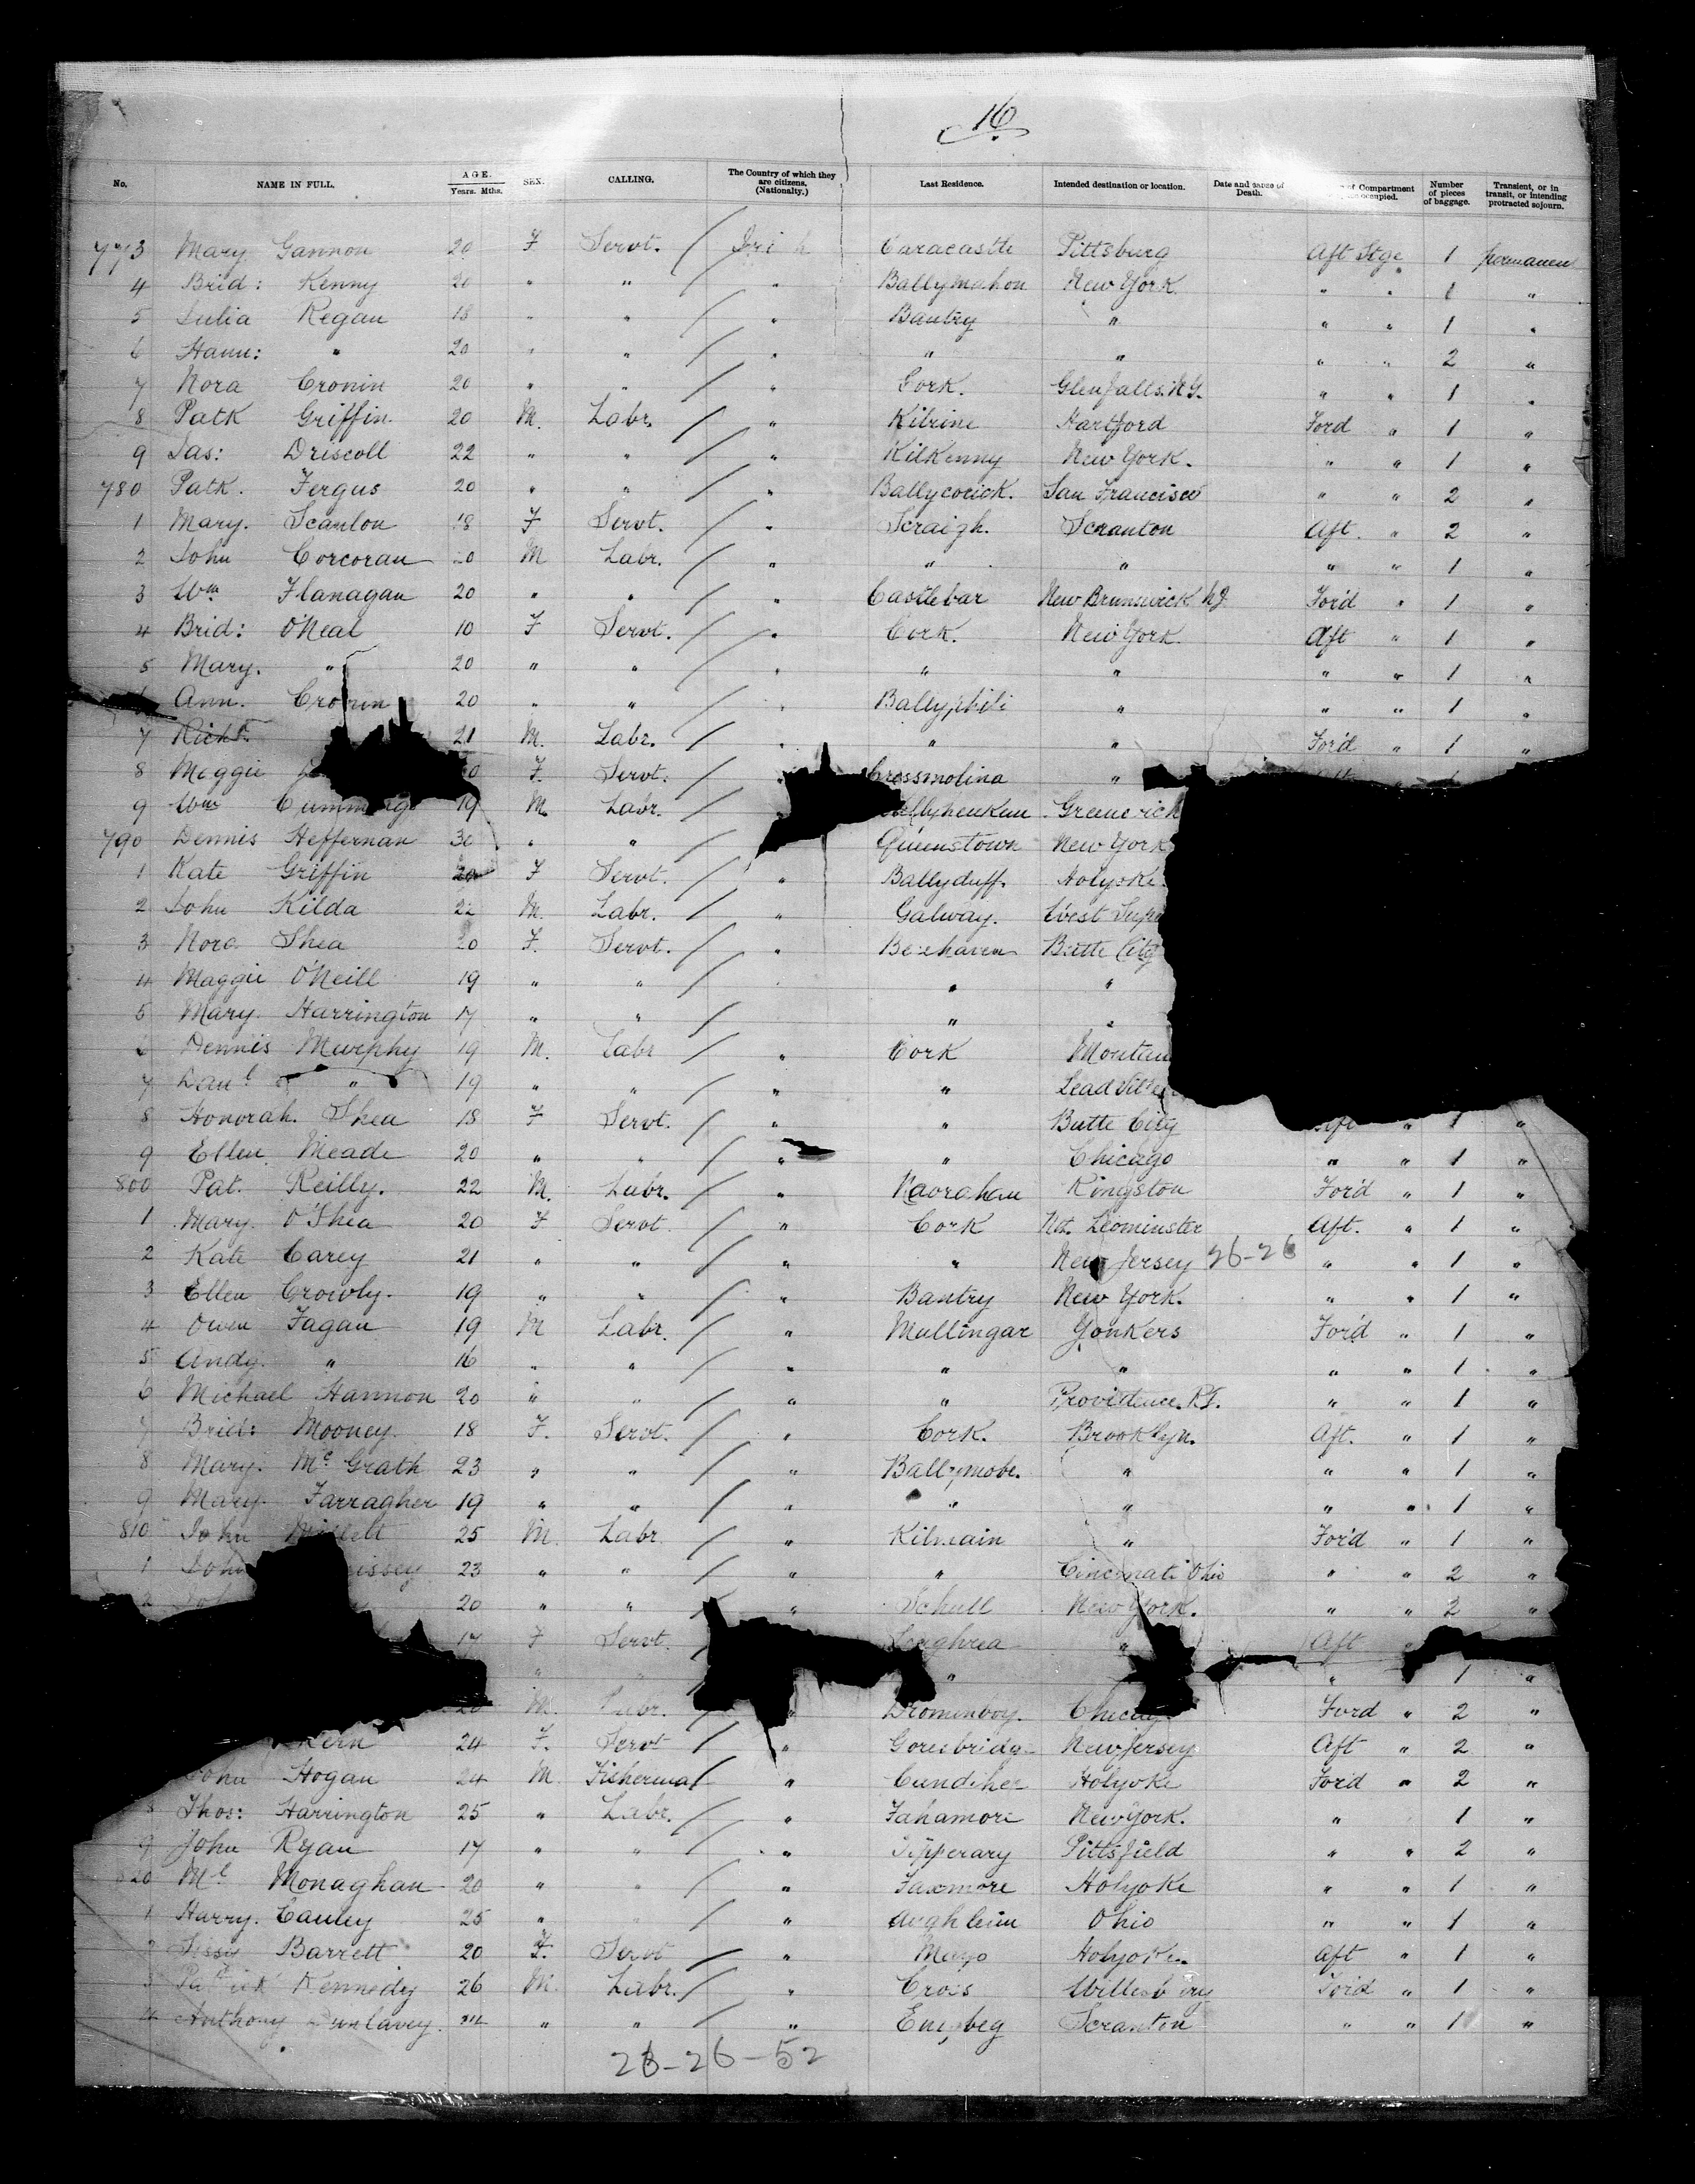 16
No. NAME IN FULL. AGE. Years. Mths. SEX. CALLING. The Country of which they are citizens. (Nationality.) Last Residence. Intended destination or location. Date and cause of Death. of Compartment occupied. Number of pieces of baggage. Transient, or in transit, or intending protracted sojourn.
773 Mary Gannon 20 F Servt. / Caracastle Pittsburg Aft Stge 1 permanen
4 Brid: Kenny 20 " " / " Ballymahon New York " " 1 "
5 Julia Regan 18 " " / " Bantry " " " 1 "
6 Hann: " 20 " " / " " " " " 2 "
7 Nora Cronin 20 " " / " Cork. Glenfalls. N.Y. " " 1 "
8 Patk Griffin 20 M. Labr. / " Kilrine Hartford Ford " 1 "
9 Jas: Driscoll 22 " " / " KilKenny New York. " " 1 "
780 Patk. Fergus 20 " " / " Ballycocick. San Francisco " " 2 "
1 Mary. Scanlon 18 F Servt. / " Scraigh. Scranton Aft. " 2 "
2 John Corcoran 20 M Labr. / " " " " " 1 "
3 Wm Flanagan 20 " " / " Castlebar New Brunswick N.J. Ford " 1 "
4 Brid: O'Neal 10 F Servt. / " Cork. New York Aft " 1 "
5 Mary. " 20 " " / " " " " " 1 "
Ann. Cronin 20 " " / " " " " 1 "
7 Richd. 21 M. Labr. / " " " Ford " 1 "
8 Meggie F. Servt. / Crossmolina "
9 Wm Cummings 19 M. Labr. / Greenwich
790 Dennis Heffernan 30 " " / Queenstown New York
1 Kate Griffin 20 F Servt. / " Ballyduff. Holyoke.
2 John Kilda 22 M. Labr. / " Galway. West Supe
3 Nora Shea 20 F. Servt. / " Berehaven Butte City
4 Maggie O'Neill 19 " " / " "
5 Mary. Harrington 17 " " / " "
6 Dennis Murphy 19 M. Labr / " Cork Montan
7 Danl " 19 " " / " " Leadville
8 Honorah. Shea 18 F Servt. / " " Butte City Aft " 1 "
9 Ellen Meade 20 " " / " " Chicago " " 1 "
800 Pat. Reilly. 22 M. Labr. / " Kingston Ford " 1 "
1 Mary. O'Shea 20 F Servt. / " Cork Nth. Leominster Aft. " 1 "
2 Kate Carey 21 " " / " " New Jersey 26-26 " " 1 "
3 Ellen Crowly. 19 " " / " Bantry New York. " " 1 "
4 Owen Fagan 19 M Labr. / " Mullingar Yonkers Ford " 1 "
5 Andy. " 16 " " / " " " " " 1 "
6 Michael Hannon 20 " " / " " Providence. R.I. " " 1 "
7 Brid: Mooney. 18 F. Servt. / " Cork. Brooklyn. Aft. " 1 "
8 Mary. McGrath 23 " " / " Ballymobe. " " " 1 "
9 Mary. Farragher 19 " " / " " " " " 1 "
810 John 25 M. Labr / " Kilmain " Ford " 1 "
1 John issey 23 " " / " " Cincinnati Ohio " " 2 "
2 20 " " / " Schull New York. " " 2 "
17 F Servt. Loughrea " Aft
" " " " 1 "
20 M. Labr. / " Drominboy. Chicag Ford " 2 "
Kern 24 F. Servt / " Goresbridge New Jersey Aft " 2 "
John Hogan 24 M. Fisherman / " Holyoke Ford " 2 "
8 Thos: Harrington 25 " Labr. / " Fahamore New York. " 1 "
9 John Ryan 17 " " / " Tipperary Pittsfield " " 2 "
820 Ml Monaghan 20 " " / " Holyoke " " 1 "
1 Harry. Cauley 25 " " / " Aughleim Ohio " " 1 "
2 Sissy Barrett 20 F. Servt / " Mayo Holyoke. Aft " 1 "
3 Patrick Kennedy 26 M. Labr. / " Crois Ford " 1 "
4 Anthony Dunlavey. 24 " " / " Scranton " " 1 "
26-26-52